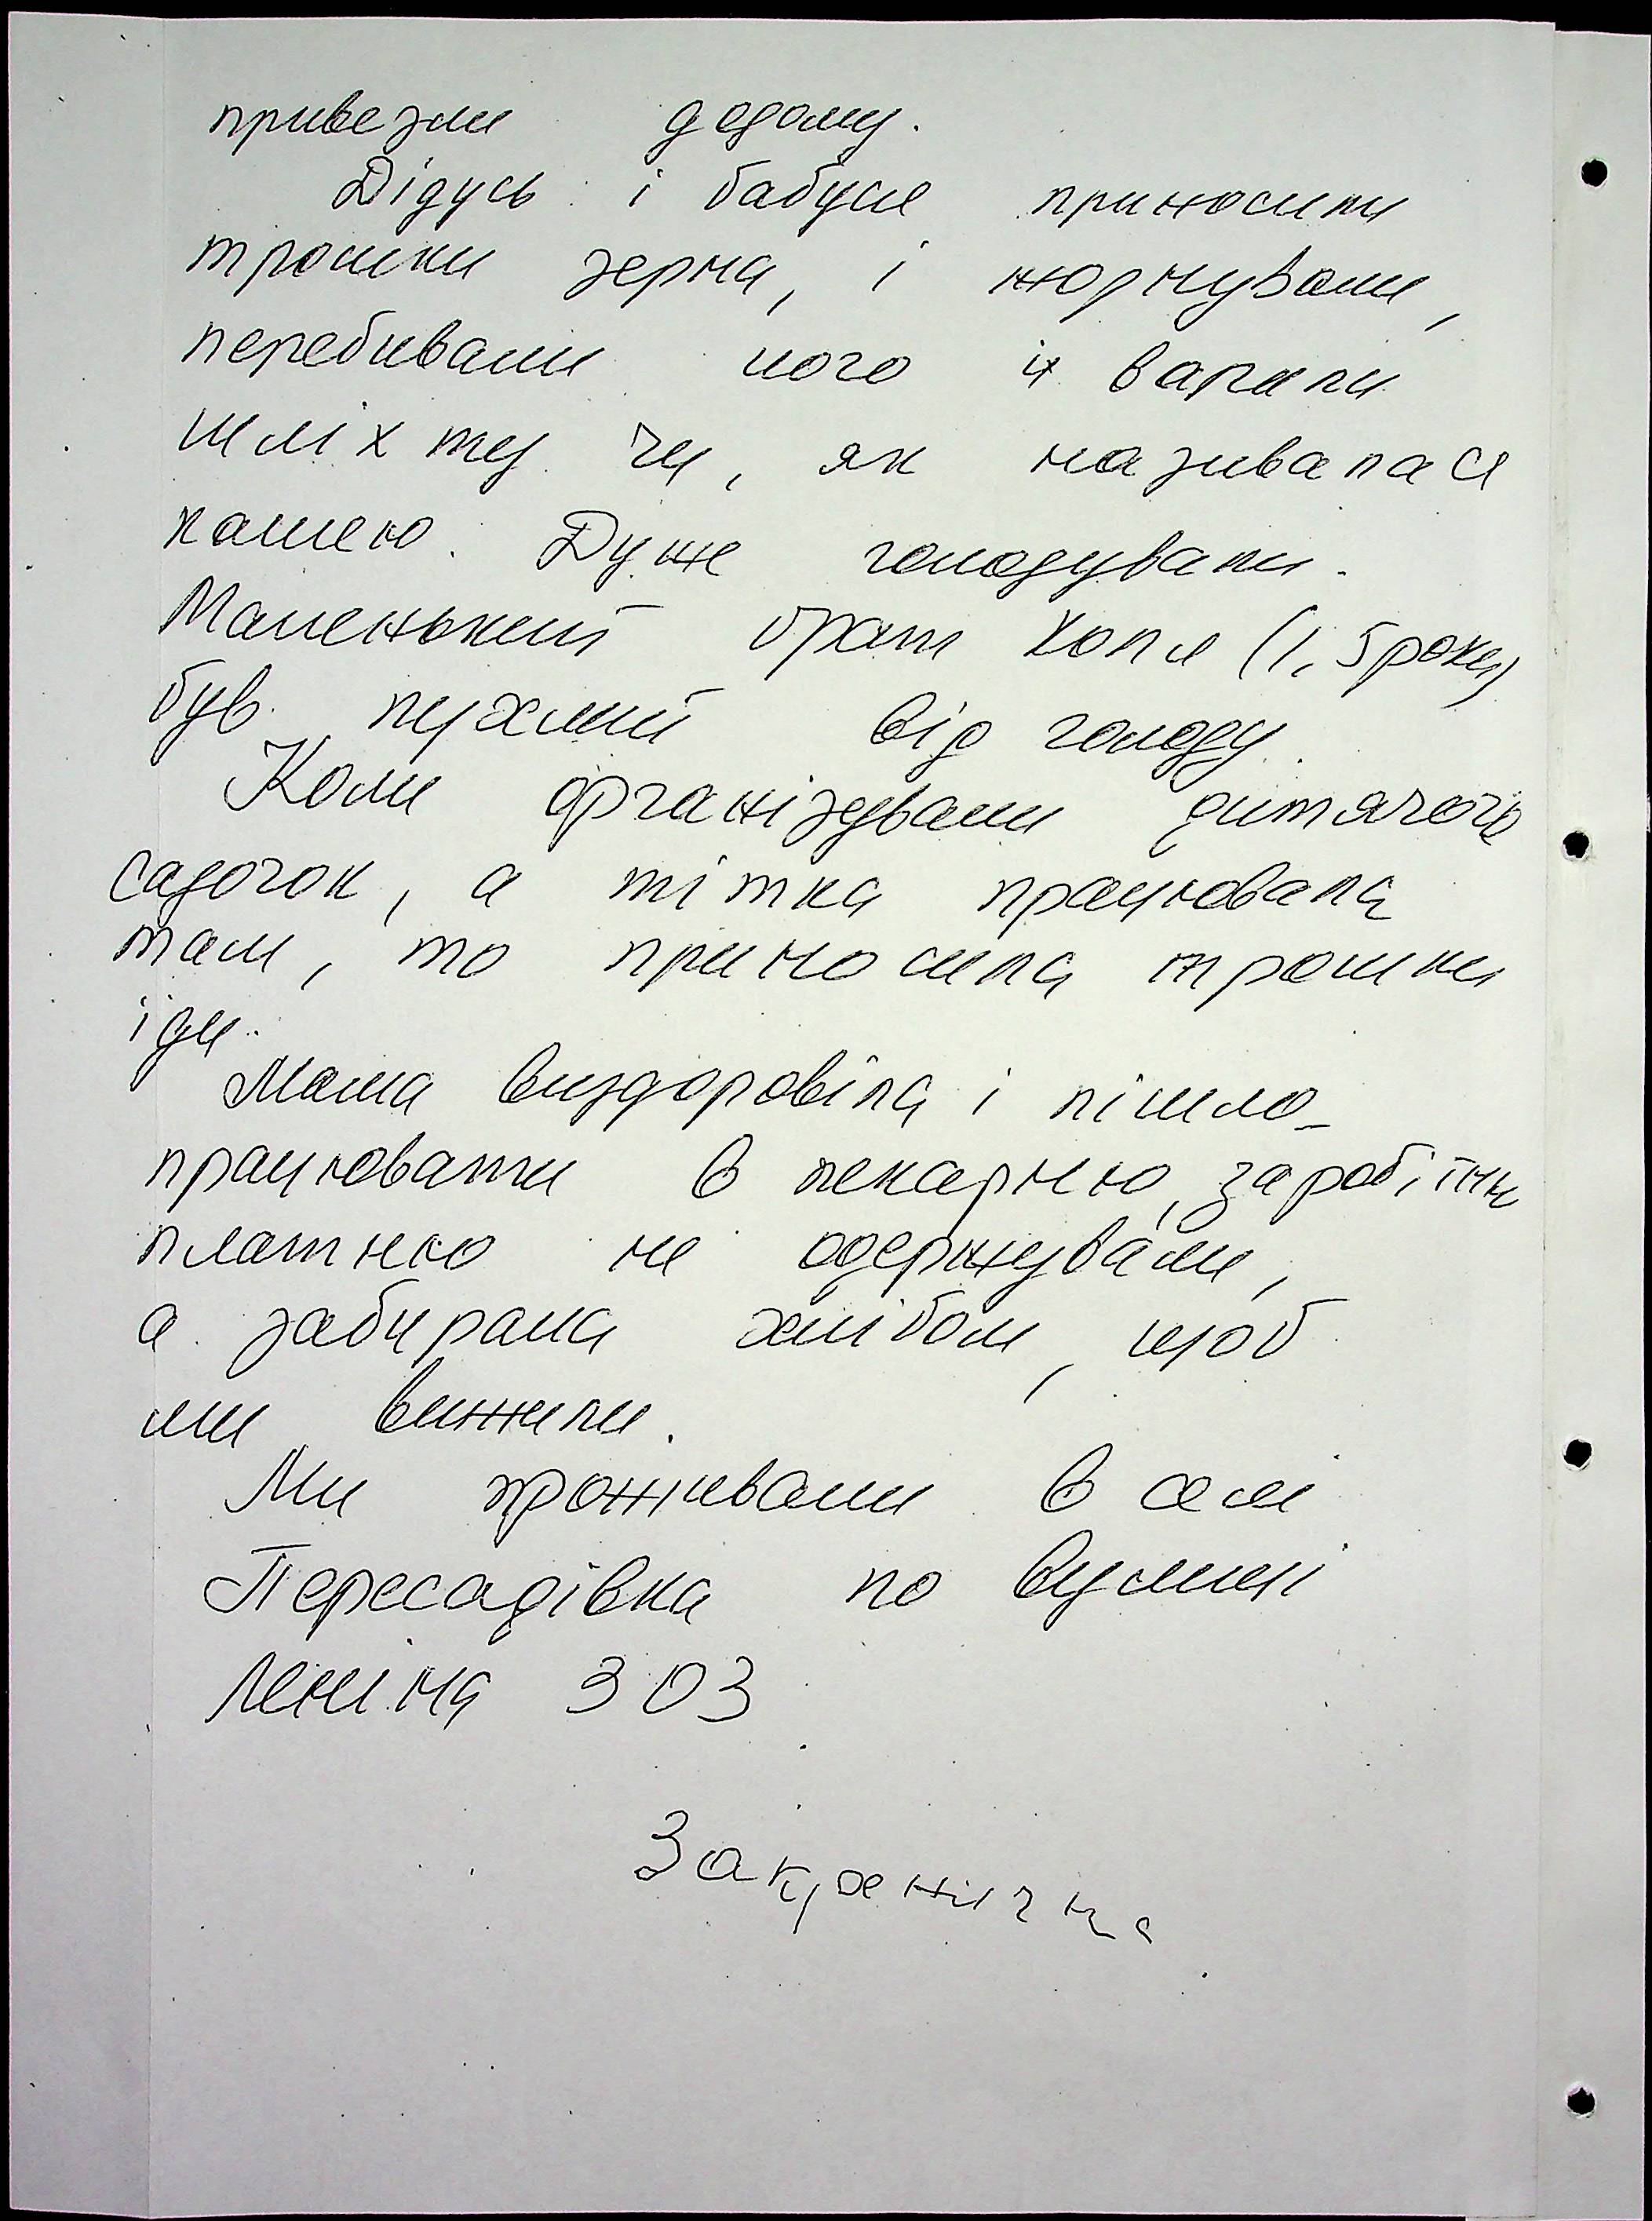 привезли додому.
Дідусь і бабуся приносили
трошки зерна, і жорнували,
перебивали його й варили
шліхту чи, як називалася
кашею. Дуже голодували.
Маленький брат Коля (1,5 роки)
був пухлий від голоду.
Коли організували дитячого
садочок, а тітка працювала
там, то приносила трошки
їди.
Мама виздоровіла і пішла
працювати в пекарню, заробітну
платню не одержували,
а забирала хлібом, щоб
ми вижили.
Ми проживали в селі
Пересадівка по вулиці
Леніна 303